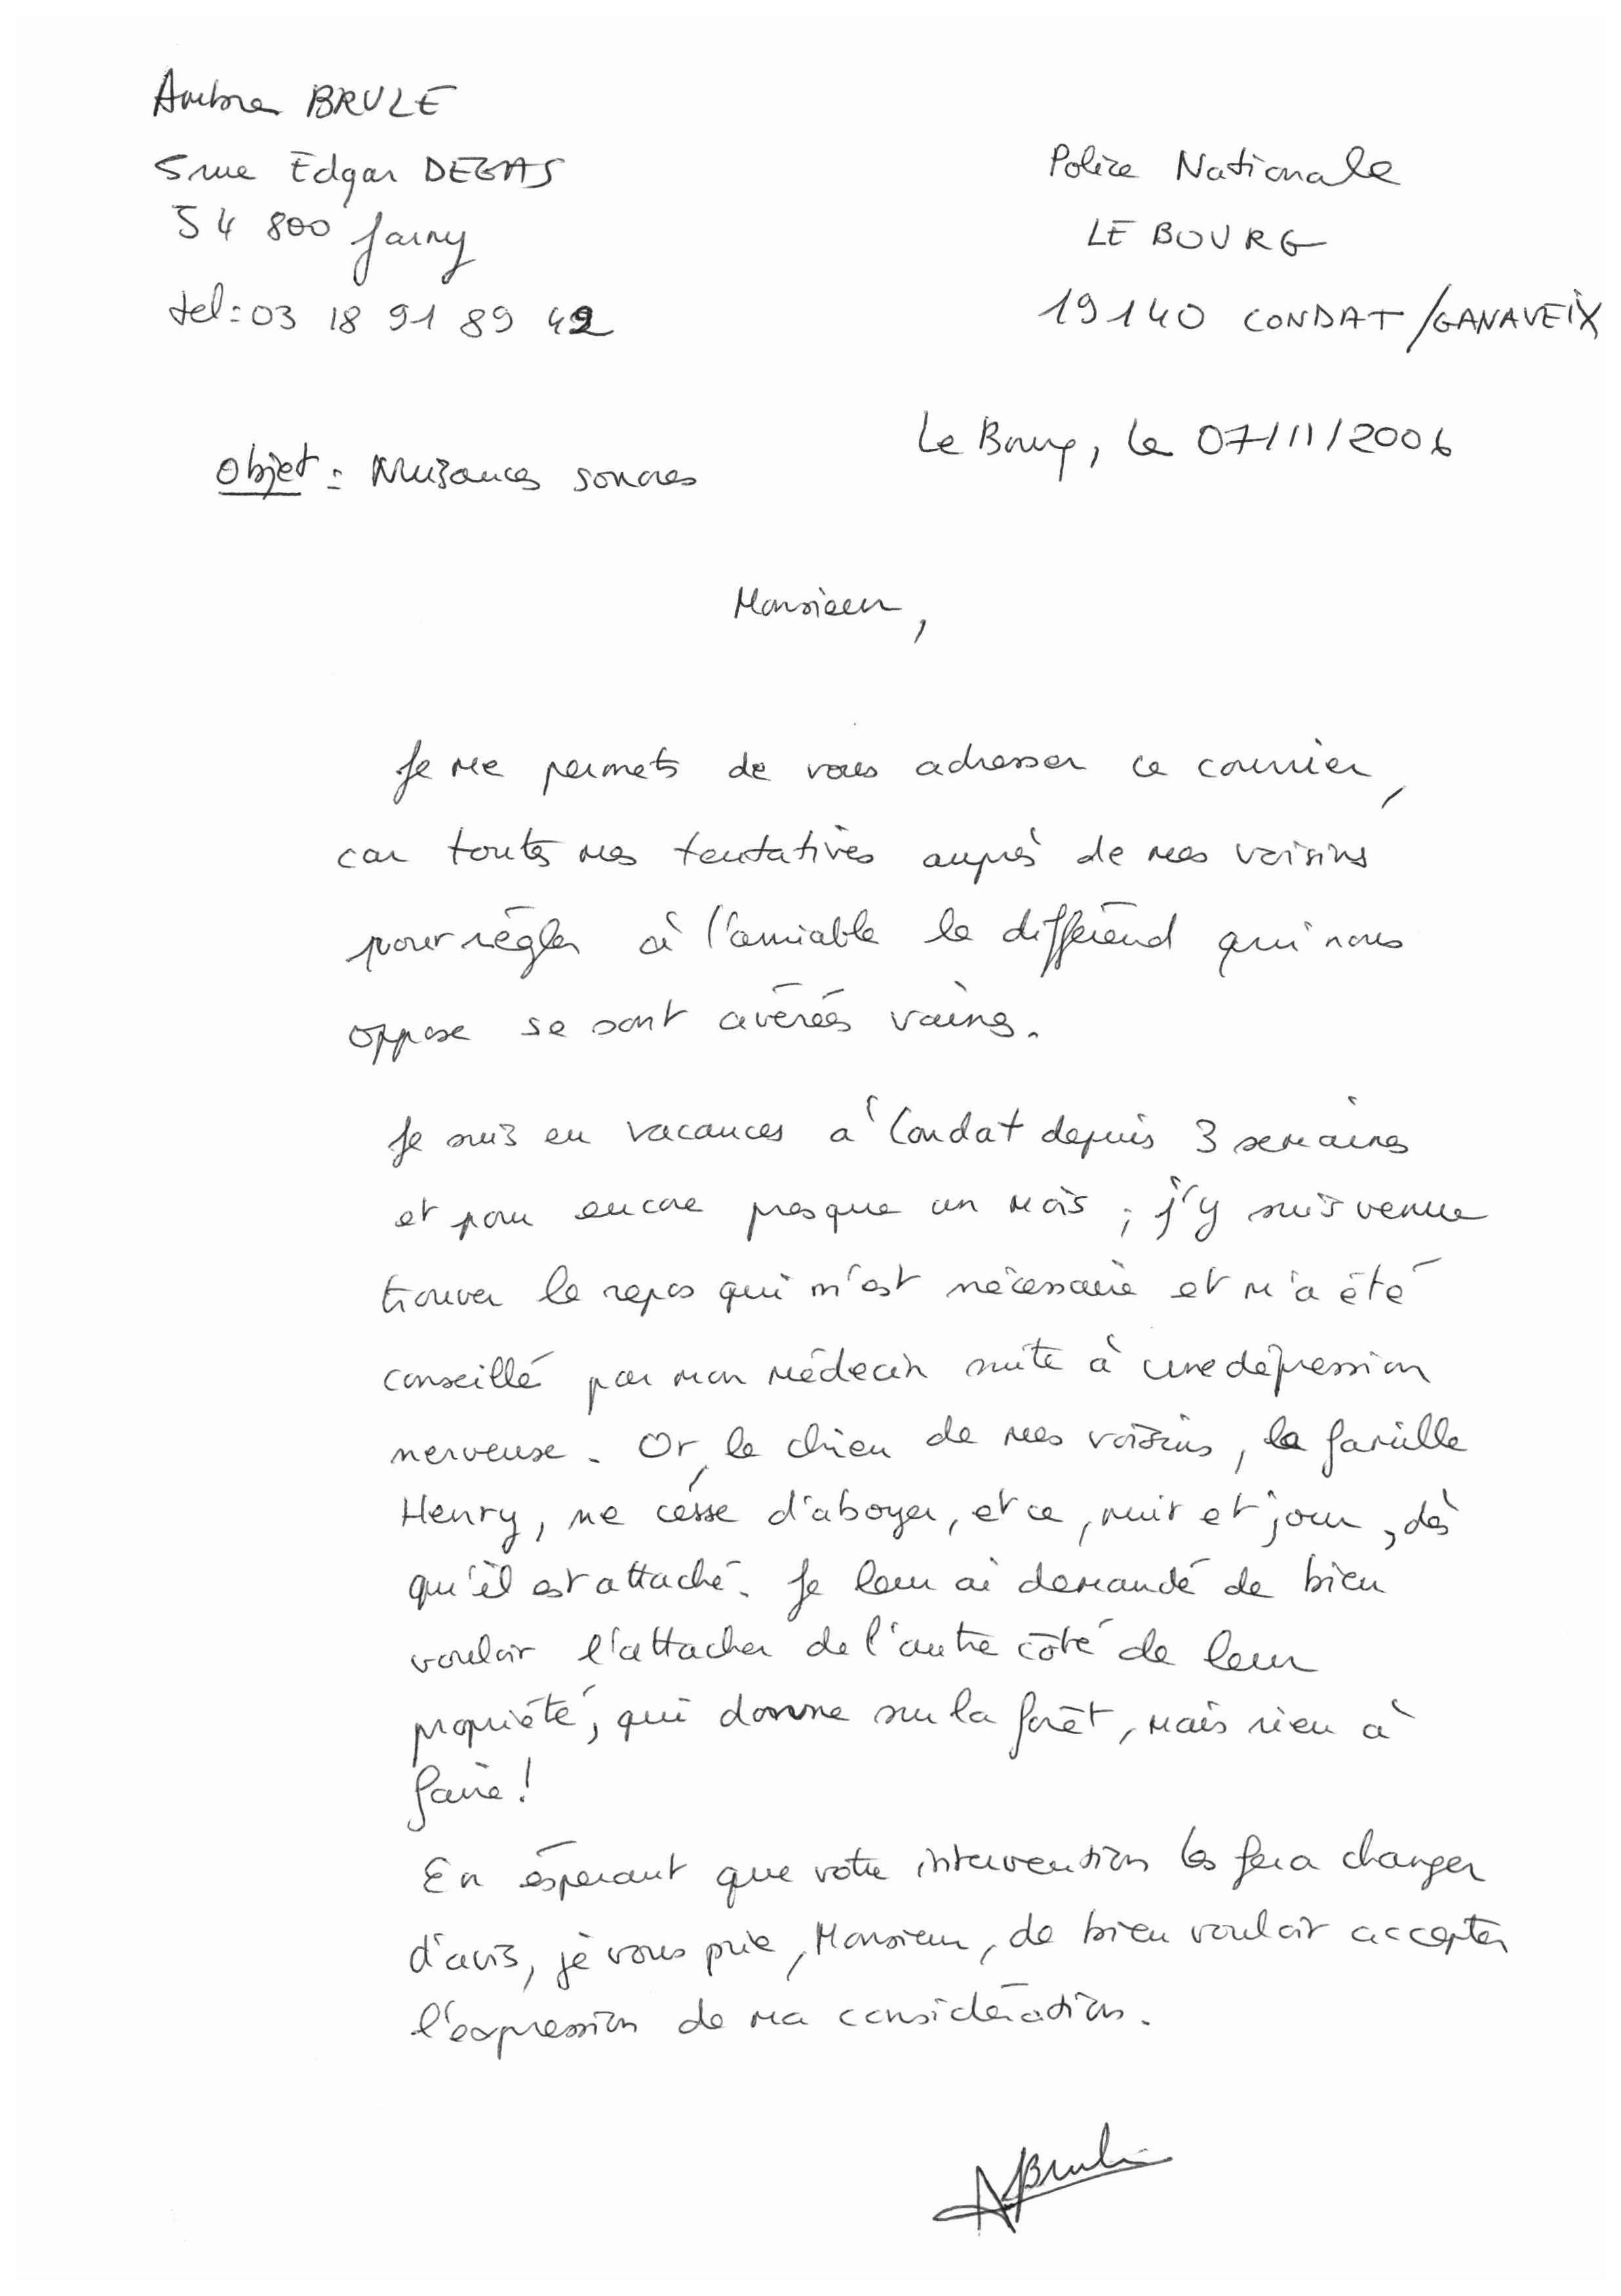 Ambre BRULE
5 rue Edgar DEGAS
54 800 Jarny
tel : 03 18 91 89 42
Police Nationale
LE BOURG
19140 CONDAT/GANAVEIX
Le Bourg, le 07/11/2006
Objet : Nuisances sonores
Monsieur,
Je me permets de vous adresser ce courrier,
car toutes mes tentatives auprès de mes voisins
pour régler à l'amiable le différend qui nous
oppose se sont avérées vaines.
Je suis en vacances à Condat depuis 3 semaines
et pour encore presque un mois ; j'y suis venue
trouver le repos qui m'est nécessaire et m'a été
conseillé par mon médecin suite à une dépression
nerveuse. Or, le chien de mes voisins, la famille
Henry, ne cesse d'aboyer, et ce, nuit et jour, dès
qu'il est attaché. Je leur ai demandé de bien
vouloir l'attacher de l'autre côté de leur
propriété, qui donne sur la forêt, mais rien à
faire !
En espérant que votre intervention les fera changer
d'avis, je vous prie, Monsieur, de bien vouloir accepter
l'expression de ma considération.
ABrulé